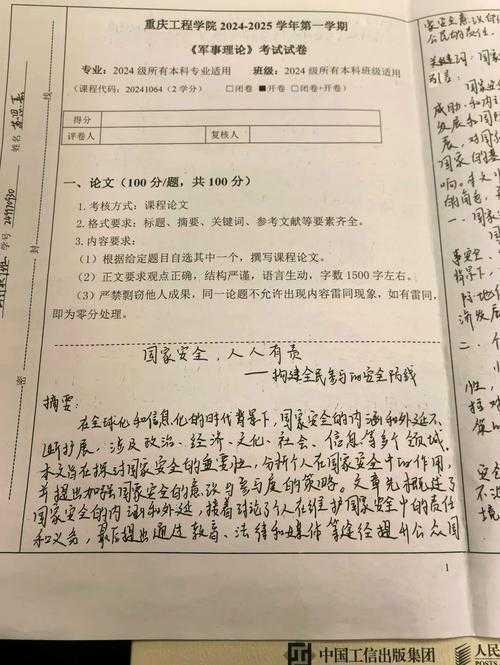 重庆工程学院 2024-2025 学年第一学期
《军事理论》考试试卷
专业：2024 级所有本科专业适用 班级：2024 级所有本科班级适用
（课程代码：20241064（2 学分） □闭卷 ■开卷 □闭卷+开卷）
得分
评卷人 复核人
一、论文（100 分/题，共 100 分）
1. 考核方式：课程论文
2. 格式要求：标题、摘要、关键词、参考文献等要素齐全。
3. 内容要求：
（1）根据给定题目自选其中一个，撰写课程论文。
（2）正文要求观点正确，结构严谨，语言生动，字数 1500 字左右。
（3）严禁剽窃他人成果，同一论题不允许出现内容雷同现象，如有雷同，
即为零分处理。
国家安全，人人有责
——构建全民参与的安全防线
摘要：
在全球化和信息化的时代背景下，国家安全的内涵和外延不
断扩展，涉及政治、经济、文化、社会、信息等多个领域。
本文旨在探讨国家安全的重要性，分析个人在国家安全中的作用，
并提出加强国家安全的意识与参与度的策略。文章先概述了
国家安全的内涵和外延，接着讨论了个人在维护国家安全中的责任
和义务，最后提出通过教育、法律和媒体等途径提升公众国
1
姓名
学号
线
封
密
家安全意识
公民的责任。
关键词：国家
引言：
国家安
发展和国
国家的
响。本文
的角色，
一、国家
背景下，
济发展
二、个
中国工信出版集团
人民